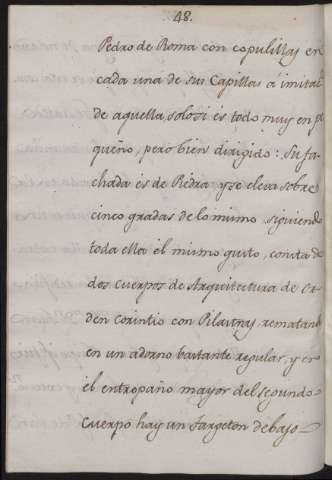 48.
Pedro de Roma con copulillas en
cada una de sus Capillas a imitaĉ
de aquella, solo si es todo muy en pe
queño, pero bien dirigido: Su fa-
chada es de Piedra y se eleva sobre
cinco gradas de lo mismo siguiendo
toda ella el mismo gusto, consta de
dos Cuerpos de Arquitectura de Or
den Corintio con Pilastras, rematando
en un adorno bastante regular, y en
el entrepaño mayor del segundo
Cuerpo hay un Targeton debajo